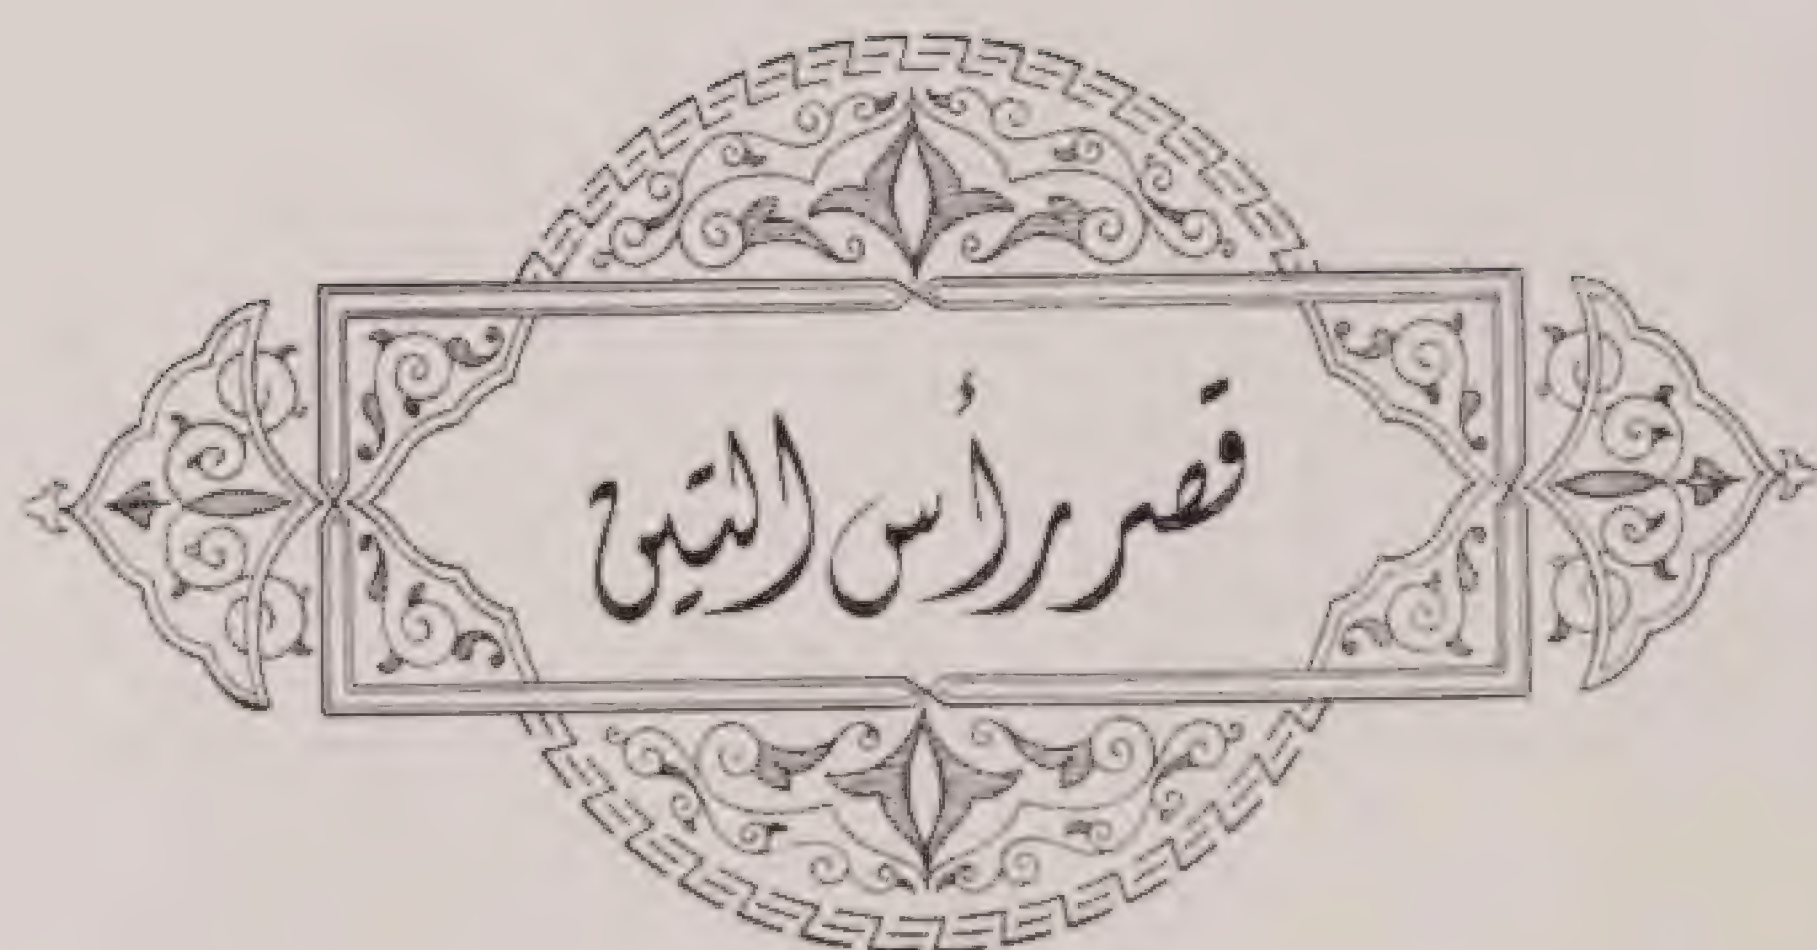 قصر رأس التين